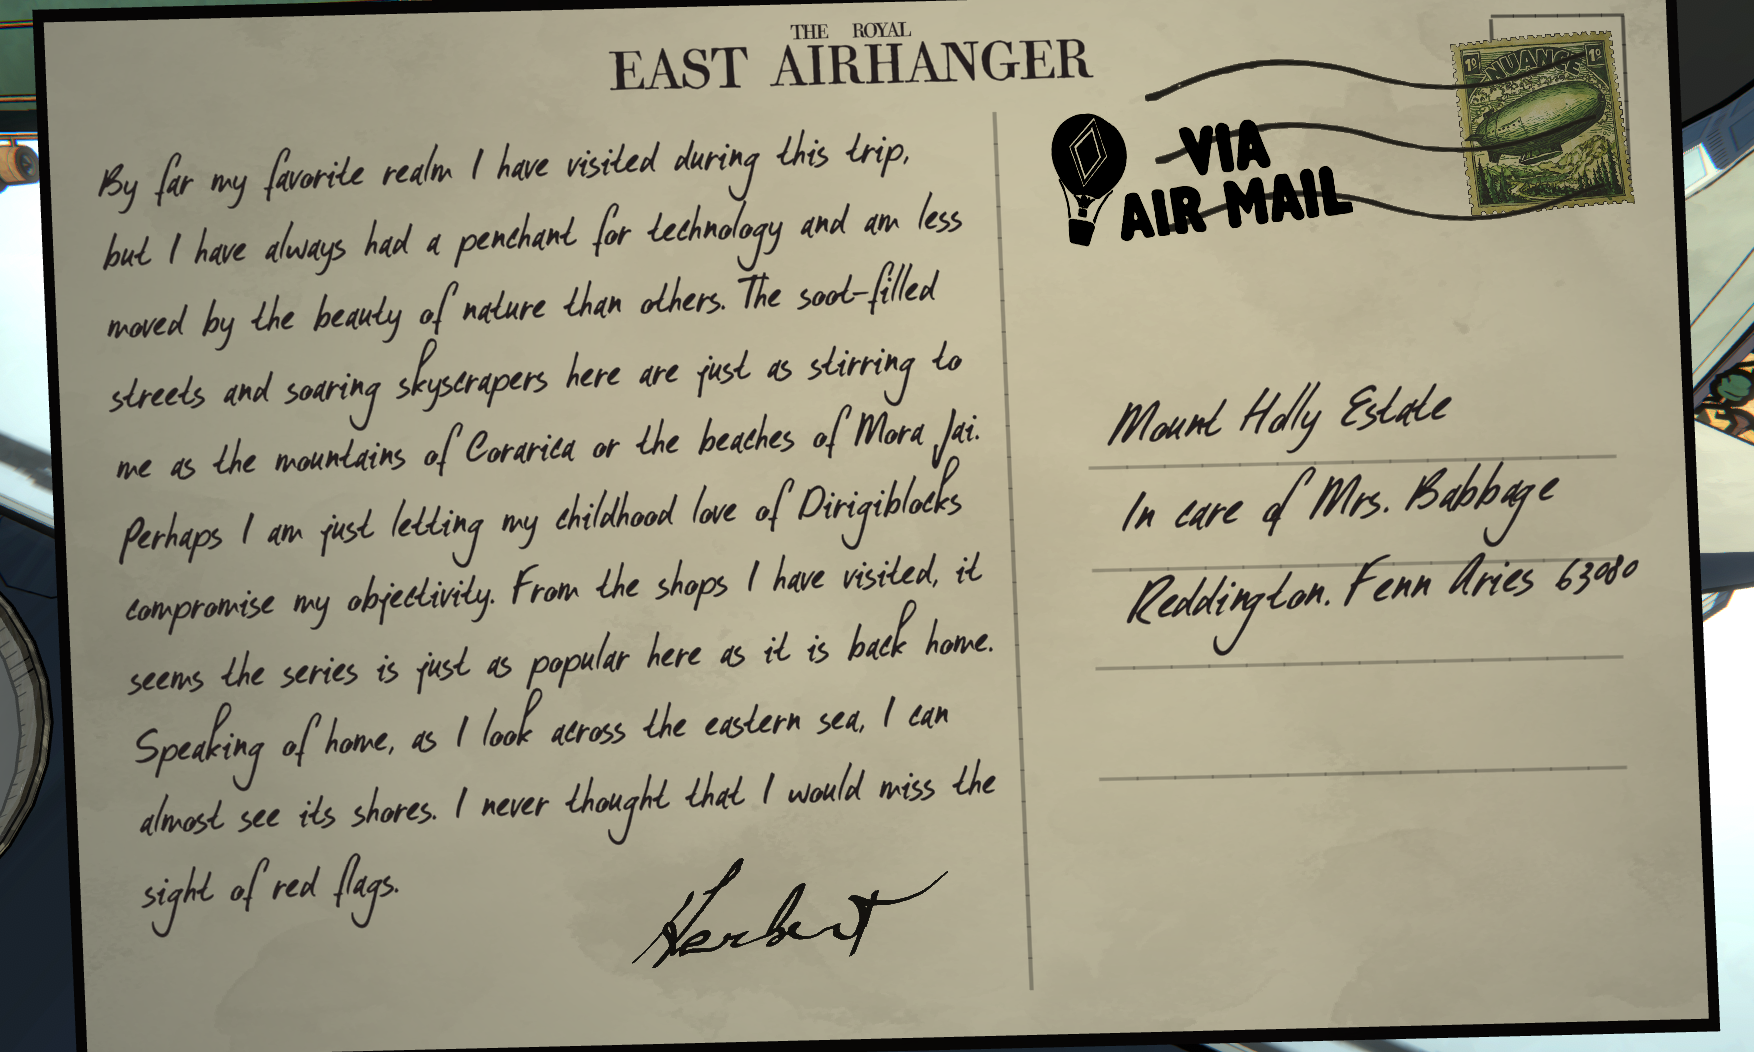 THE ROYAL
EAST AIRHANGER
By far my favorite realm I have visited during this trip,
but I have always had a penchant for technology and am less
moved by the beauty of nature than others. The soot-filled
streets and soaring skyscrapers here are just as stirring to
me as the mountains of Corarica or the beaches of Mora Jai.
Perhaps I am just letting my childhood love of Dirigiblocks
compromise my objectivity. From the shops I have visited, it
seems the series is just as popular here as it is back home.
Speaking of home, as I look across the eastern sea, I can
almost see its shores. I never thought that I would miss the
sight of red flags.
Herbert
1º NUANCE 1º
VIA
AIR MAIL
Mount Holly Estate
In care of Mrs. Babbage
Reddington. Fenn Aries 63080